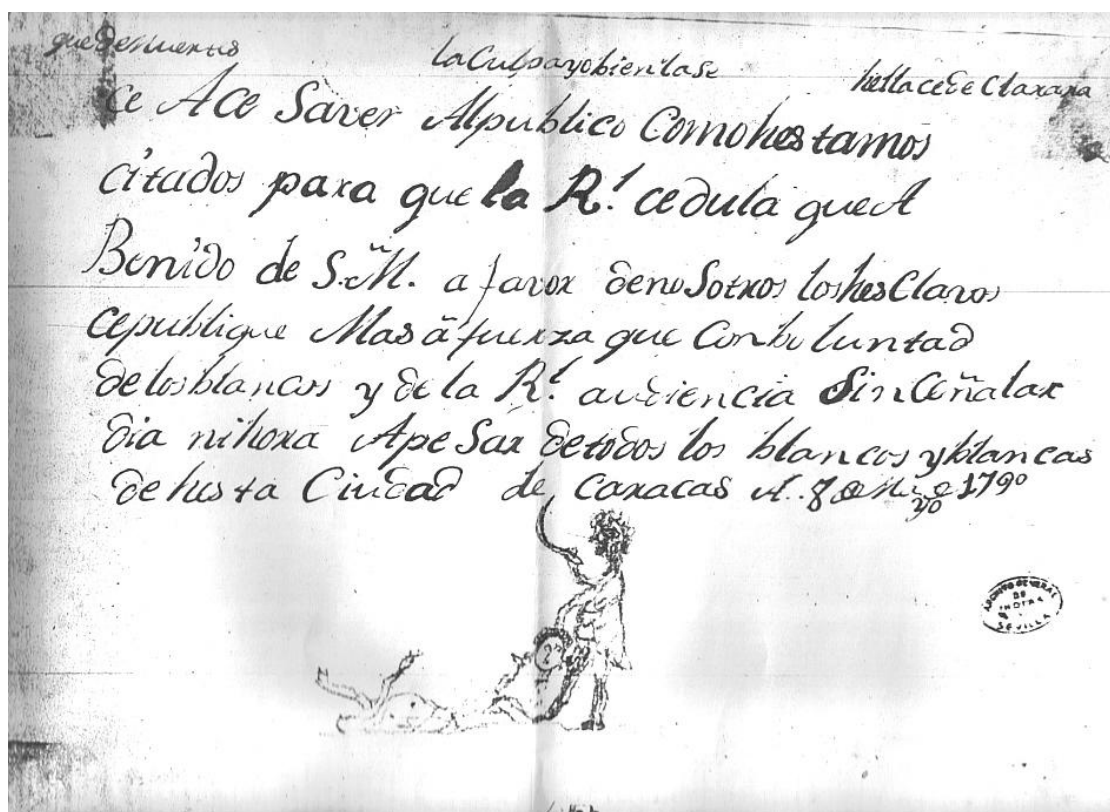 que de Muertos la Culpa yo bien la se
ce Ace Saver Al publico Como hestamos
citados para que la R.l cedula que A
Benido de S.M. a favor de no Sotros los hesClavos
ce publique Mas â fuerza que Con bo luntad
de los blancos y de la R.l audiencia Sin Ceñalar
dia ni hora Ape Sar de todos los blancos y blancas
de hesta Ciudad de Caracas A. 1790
ARCHIVO GENERAL
DE
INDIAS
SEVILLA